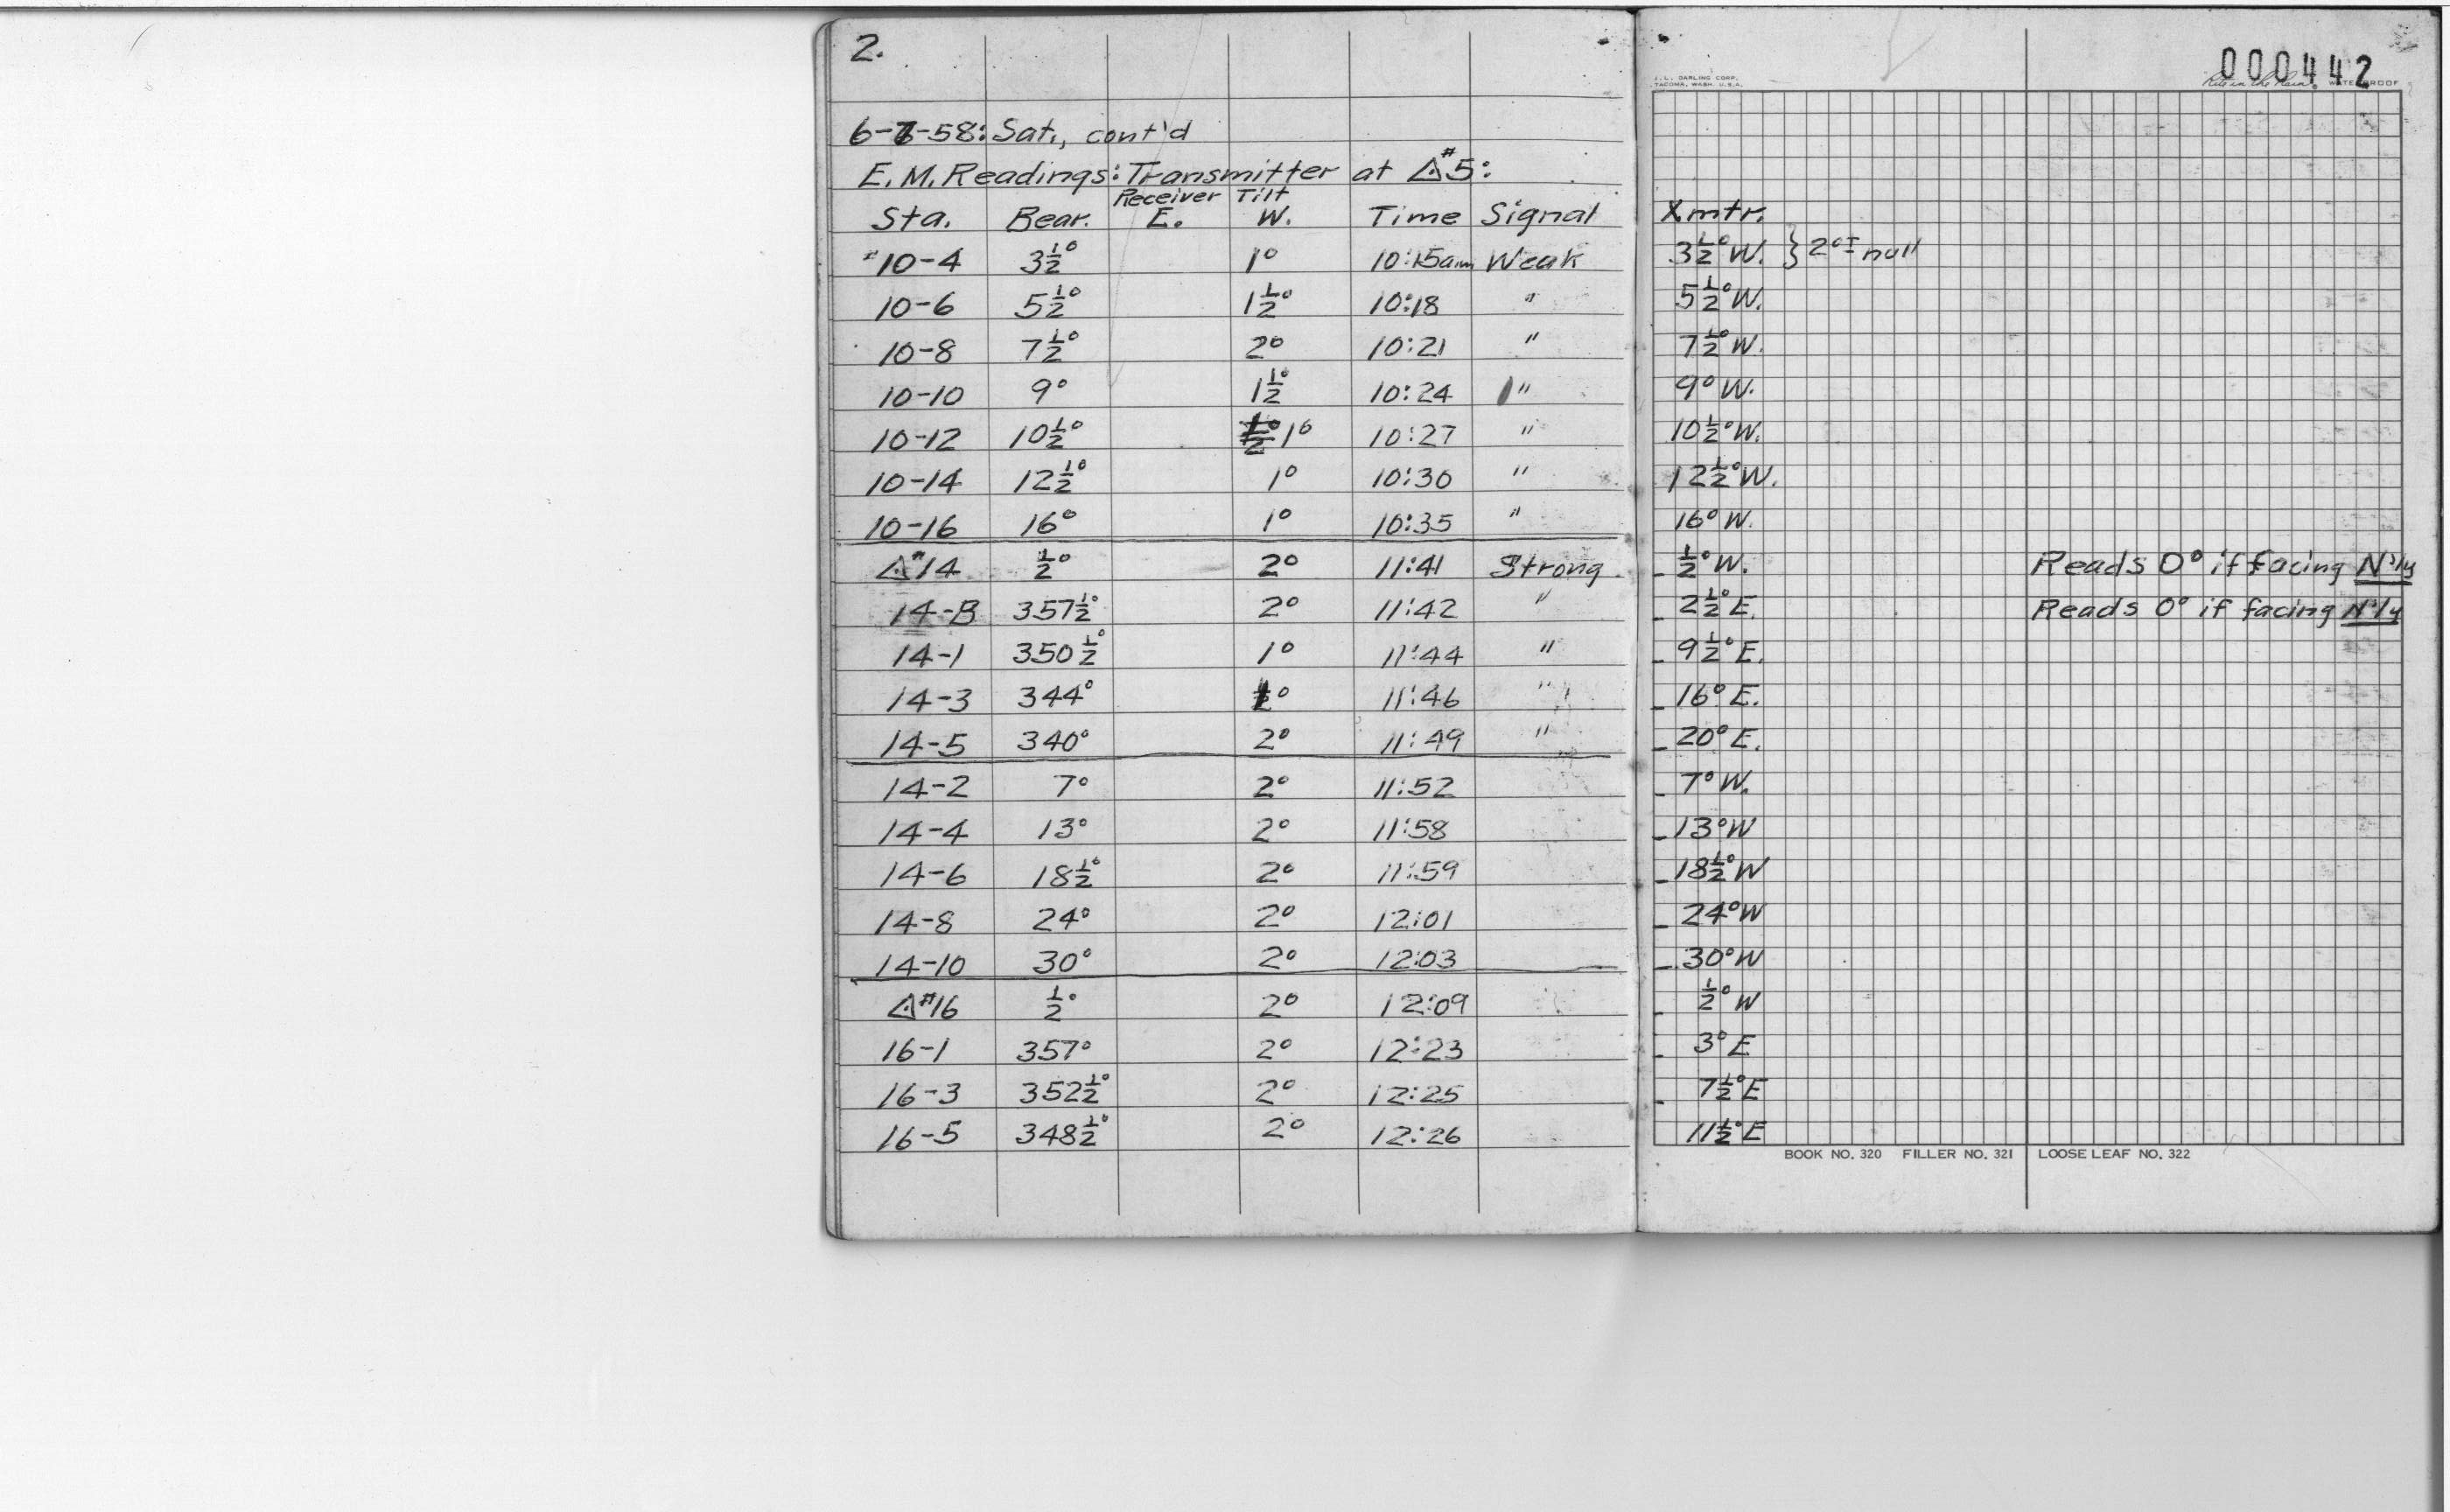 2.
6-7-58: Sat., cont'd
E.M. Readings: Transmitter at △#5:
Receiver Tilt
Sta. Bear. E. W. Time Signal
#10-4 3½° 1° 10:15am Weak
10-6 5½° 1½° 10:18 "
10-8 7½° 2° 10:21 "
10-10 9° 1½° 10:24 "
10-12 10½° 1° 10:27 "
10-14 12½° 1° 10:30 "
10-16 16° 1° 10:35 "
△#14 ½° 2° 11:41 Strong
14-B 357½° 2° 11:42 "
14-1 350½° 1° 11:44 "
14-3 344° 1° 11:46 "
14-5 340° 2° 11:49 "
14-2 7° 2° 11:52
14-4 13° 2° 11:58
14-6 18½° 2° 11:59
14-8 24° 2° 12:01
14-10 30° 2° 12:03
△#16 ½° 2° 12:09
16-1 357° 2° 12:23
16-3 352½° 2° 12:25
16-5 348½° 2° 12:26
J. L. DARLING CORP.
TACOMA, WASH. U.S.A.
000442
Rite in the Rain WATERPROOF
Xmtr.
3½° W. } 2°± null
5½° W.
7½° W.
9° W.
10½° W.
12½° W.
16° W.
½° W. Reads 0° if facing N'ly
2½° E. Reads 0° if facing N'ly
9½° E.
16° E.
20° E.
7° W.
13° W
18½° W
24° W
30° W
½° W
3° E
7½° E
11½° E
BOOK NO. 320 FILLER NO. 321 LOOSE LEAF NO. 322